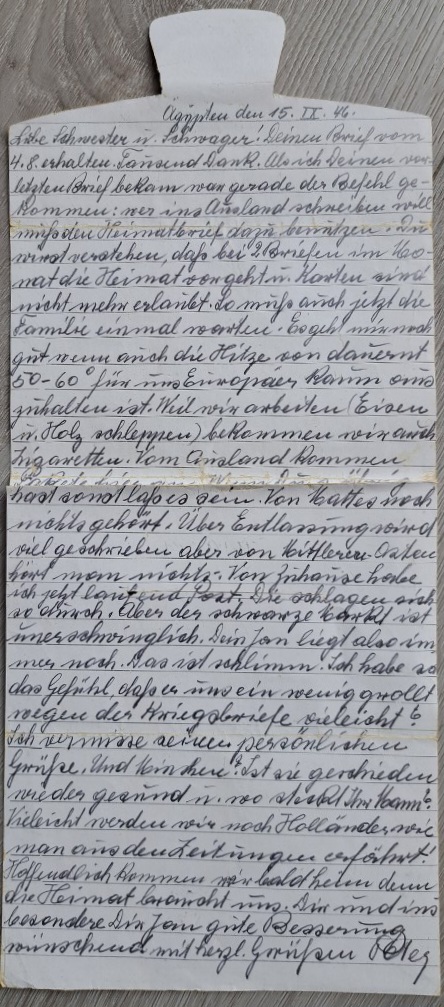 Ägypten den 15. IX. 46.
Liebe Schwester u. Schwager! Deinen Brief vom
4.8. erhalten. Tausend Dank. Als ich Deinen vor-
letzten Brief bekam war gerade der Befehl ge-
kommen: wer ins Ausland schreiben will
muß den Heimatbrief dazu benutzen. Du
wirst verstehen, daß bei 2 Briefen im Mo-
nat die Heimat vorgeht u. Karten sind
nicht mehr erlaubt. So muß auch jetzt die
Familie einmal warten. Es geht mir noch
gut wenn auch die Hitze von dauernt
50-60° für uns Europäer kaum aus
zuhalten ist. Weil wir arbeiten (Eisen
u. Holz schleppen) bekommen wir auch
Zigaretten. Vom Ausland kommen
hast sonst laß es sein. Von Mattes noch
nichts gehört. Über Entlassung wird
viel geschrieben aber von Mittleren-Osten
hört man nichts. Von zuhause habe
ich jetzt laufend Post. Die schlagen sich
so durch. Aber der schwarze Markt ist
unerschwinglich. Dein Jan liegt also im
mer noch. Das ist schlimm. Ich habe so
das Gefühl, daß er uns ein wenig grollt
wegen der Kriegsbriefe vieleicht?
Ich vermisse seinen persönlichen
Grüße. Und Minchen? Ist sie geschieden
wieder gesund u. wo steckt Ihr Mann?
Vieleicht werden wir noch Holländer, wie
man aus den Zeitungen erfährt!
Hoffendlich kommen wir bald heim denn
die Heimat braucht uns. Dir und ins
besondere Dir Jan gute Besserung
wünschend mit herzl. Grüßen